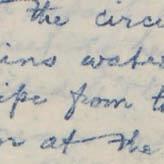 the circu
ins water
ipe from t
n at the